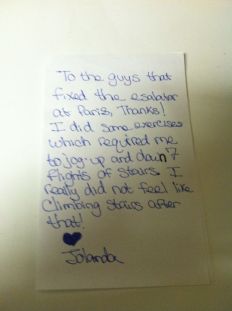 To the guys that
fixed the esalator
at Paris, Thanks!
I did some exercises
which required me
to jog up and down 7
flights of stairs. I
really did not feel like
climbing stairs after
that!
Jolanda